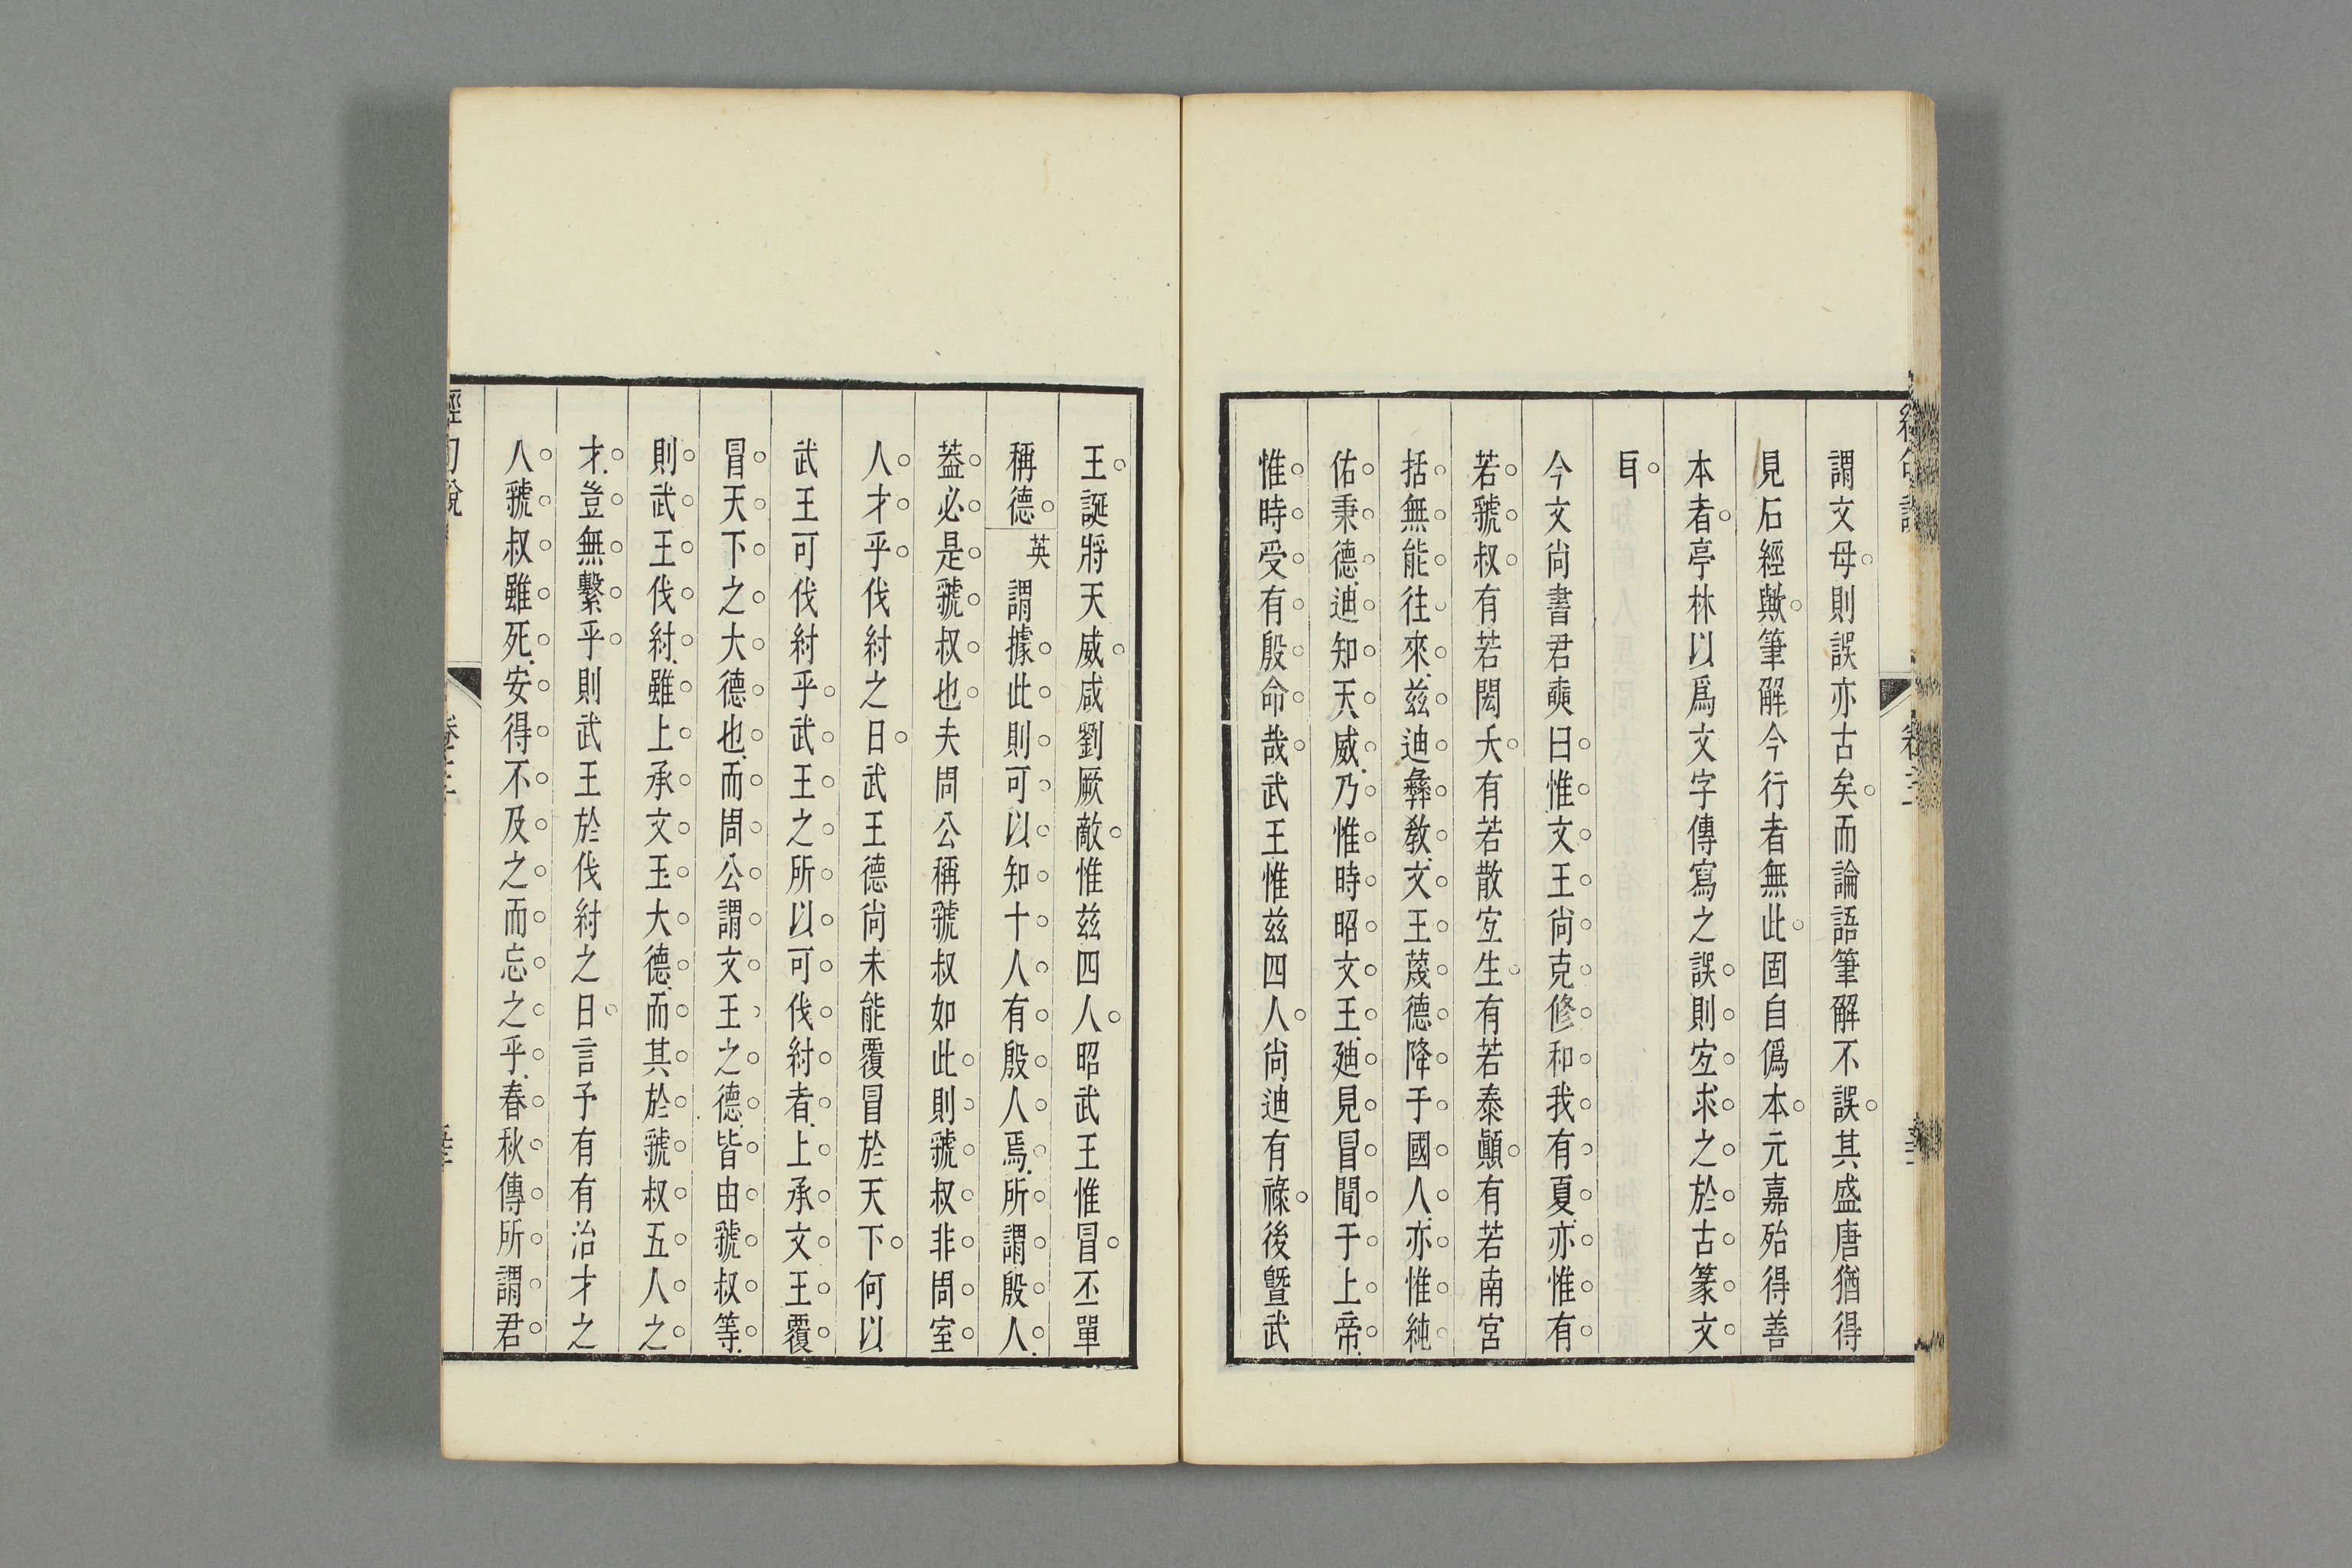 謂文母則誤亦古矣而論語筆解不誤其盛唐猶得
見石經歟筆解今行者無此固自僞本元嘉殆得善
本者亭林以爲文字傳寫之誤則宐求之於古篆文
耳
今文尙書君奭曰惟文王尙克修和我有夏亦惟有
若虢叔有若閎夭有若散宐生有若泰顚有若南宮
括無能往來茲迪彝敎文王蔑德降于國人亦惟純
佑秉德迪知天威乃惟時昭文王廸見冒聞于上帝
惟時受有殷命哉武王惟茲四人尙迪有祿後曁武
王誕將天威咸劉厥敵惟茲四人昭武王惟冒丕單
稱德英謂據此則可以知十人有殷人焉所謂殷人
葢必是虢叔也夫周公稱虢叔如此則虢叔非周室
人才乎伐紂之日武王德尙未能覆冒於天下何以
武王可伐紂乎武王之所以可伐紂者上承文王覆
冒天下之大德也而周公謂文王之德皆由虢叔等
則武王伐紂雖上承文王大德而其於虢叔五人之
才豈無繫乎則武王於伐紂之日言予有有治才之
人虢叔雖死安得不及之而忘之乎春秋傳所謂君
經句說